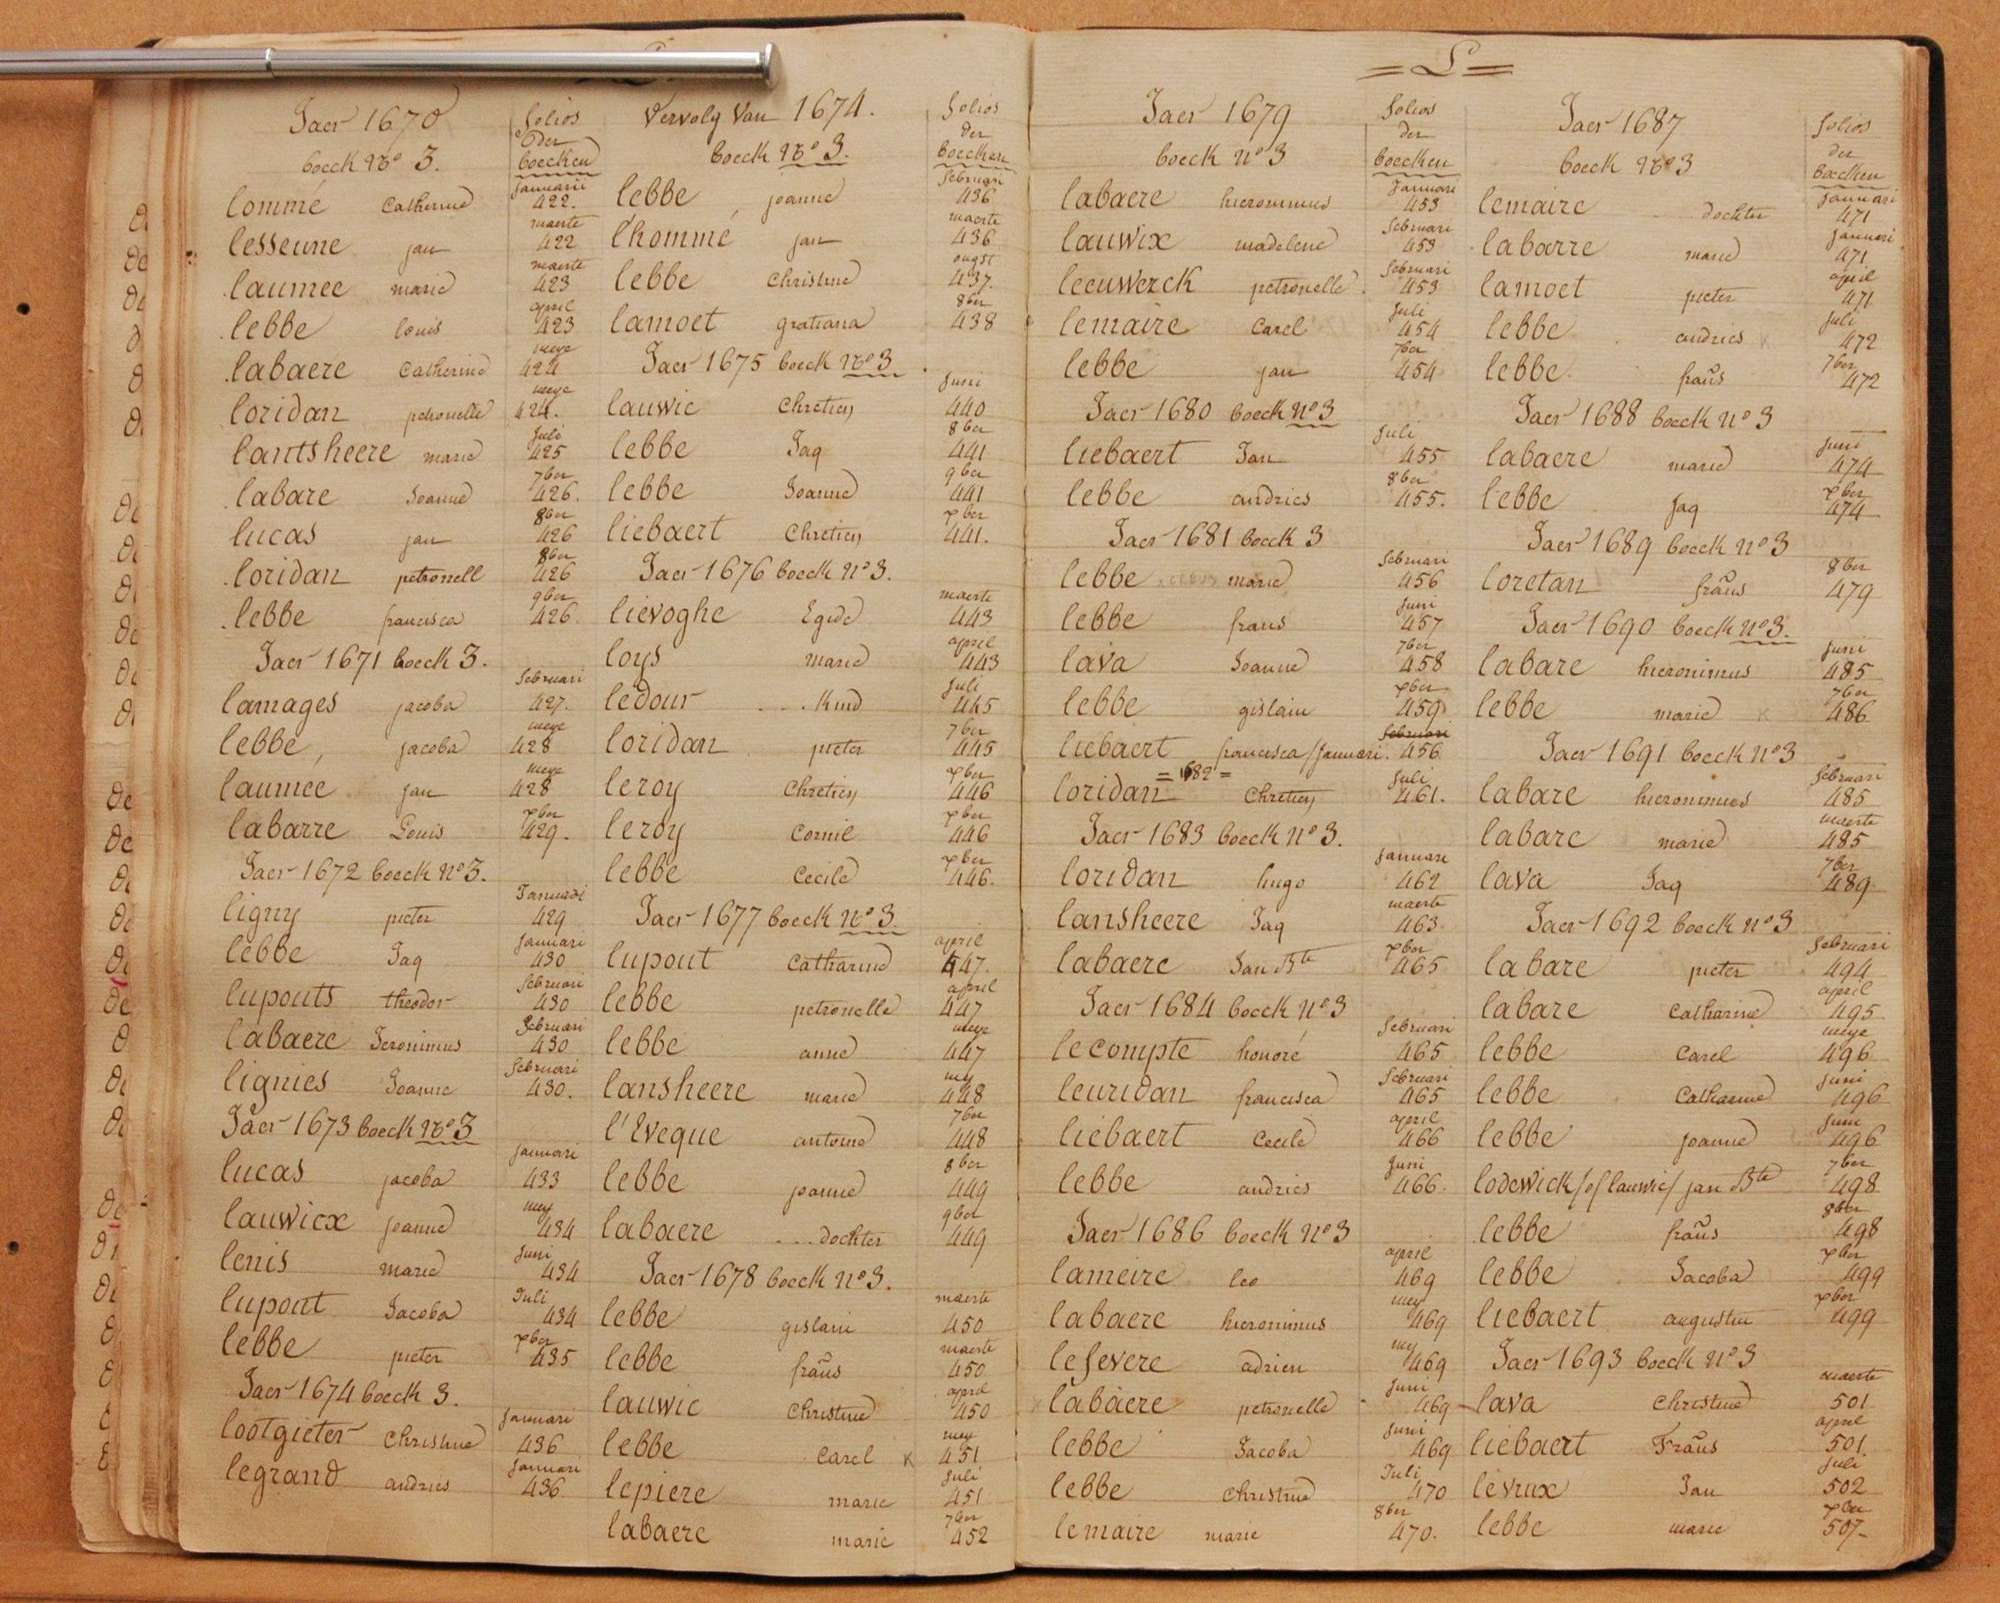 Jaer 1670
boeck No 3.
folios
der
boecken
lommé Catherine januarii 422.
lesseune jan maerte 422
laumee marie maerte 423
lebbe louis april 423
labaere Catherine meye 424
loridan petronelle meye 424.
lantsheere marie Juli 425
labare Joanne 7ber 426.
lucas jan 8ber 426
loridan petronell 8ber 426
lebbe francisca 9ber 426.
Jaer 1671 boeck 3.
lamages jacoba februari 427.
lebbe, jacoba meye 428
laumee jan meye 428
labarre Louis xber 429.
Jaer 1672 boeck No 3.
ligny pieter Januari 429
lebbe Jaq Januari 430
lupouts theodor februari 430
labaere Jeronimus februari 430
lignies Joanne februari 430.
Jaer 1673 boeck No 3
lucas jacoba januari 433
lauwicx joanne mey 434
lenis marie Juni 434
lupout Jacoba Juli 434
lebbe pieter xber 435
Jaer 1674 boeck 3.
lootgieter Christine januari 436
legrand andries januari 436
Vervolg Van 1674.
boeck No 3.
folios
der
boecken
lebbe joanne februari 436
l'hommé jan maerte 436
lebbe Christine ougst 437.
lamoet gratiana 8ber 438
Jaer 1675 boeck No 3
lauwic Chretien Juni 440
lebbe Jaq 8ber 441
lebbe Joanne 9ber 441
liebaert Chretien xber 441.
Jaer 1676 boeck No 3.
lievoghe Egide maerte 443
loys marie april 443
ledour ....kind Juli 445
loridan pieter 7ber 445
leroy Chretien xber 446
leroy Cornil xber 446
lebbe Cecile xber 446.
Jaer 1677 boeck No 3.
lupout Catharine april 447.
lebbe petronelle april 447
lebbe anne meye 447
lansheere marie mey 448
l'Eveque antoine 7ber 448
lebbe joanne 8ber 449
labaere ....dochter 9ber 449
Jaer 1678 boeck No 3.
lebbe gislain maerte 450
lebbe frañs maerte 450
lauwic Christine april 450
lebbe Carel x mey 451
lepiere marie Juli 451
labaere marie 7ber 452
=L=
Jaer 1679
boeck No 3
folios
der
boecken
labaere hieronimus Januari 453
lauwix madelene februari 453
leeuwerck petronelle februari 453
lemaire Carel Juli 454
lebbe jan 7ber 454
Jaer 1680 boeck No 3
liebaert Jan Juli 455
lebbe andries 8ber 455.
Jaer 1681 boeck 3
lebbe marie februari 456
lebbe frans Juni 457
lava Joanne 7ber 458
lebbe gislain xber 459
liebaert francisca /Januari. februari 456
= 1682 =
loridan Chretien Juli 461.
Jaer 1683 boeck No 3.
loridan hugo januari 462
lansheere Jaq maerte 463.
labaere Jan Bte xber 465
Jaer 1684 boeck No 3
lecompte honoré februari 465
leuridan francisca februari 465
liebaert Cecile april 466
lebbe andries Juni 466.
Jaer 1686 boeck No 3
lameire leo april 469
labaere hieronimus mey 469
lefevere adrien mey 469
labaere petronelle Juni 469
lebbe Jacoba Juni 469
lebbe Christine Juli 470
lemaire marie 8ber 470.
Jaer 1687
boeck No 3
folios
der
boecken
lemaire dochter januari 471
labarre marie januari 471
lamoet pieter april 471
lebbe andries x Juli 472
lebbe frañs 7ber 472
Jaer 1688 boeck No 3
labaere marie Juni 474
lebbe Jaq xber 474
Jaer 1689 boeck No 3
loretan frañs 8ber 479
Jaer 1690 boeck No 3.
labare hieronimus Juni 485
lebbe marie x 7ber 486
Jaer 1691 boeck No 3
labare hieronimus februari 485
labare marie maerte 485
lava Jaq 7ber 489
Jaer 1692 boeck No 3
labare pieter februari 494
labare Catharine april 495
lebbe Carel meye 496
lebbe Catharine Juni 496
lebbe joanne Juni 496
lodewick /of lauwic/ jan Bte 7ber 498
lebbe frañs 8ber 498
lebbe Jacoba xber 499
liebaert augustin xber 499
Jaer 1693 boeck No 3
lava Christine maerte 501
liebaert Frañs april 501.
levrux Jan Juli 502
lebbe marie xber 507